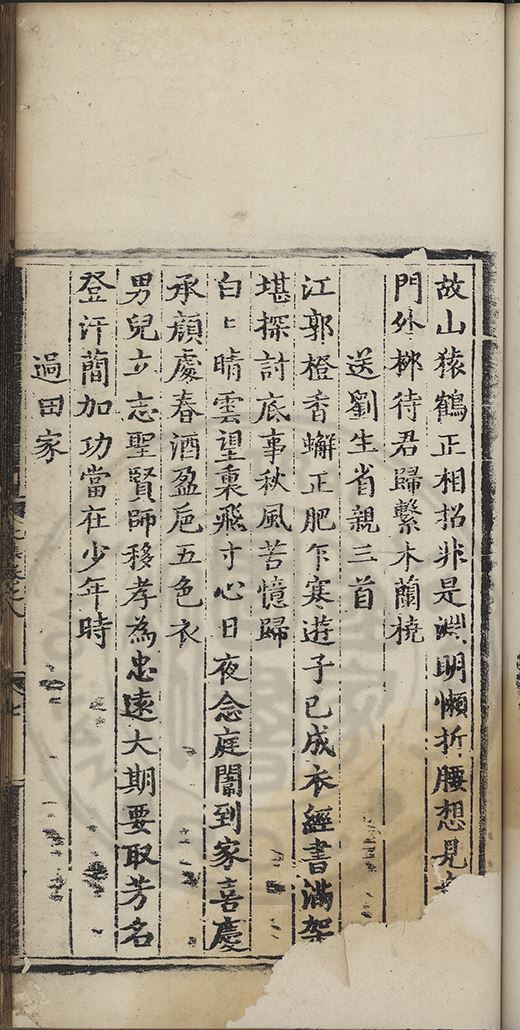 故山猿鶴正相招非是淵明懶折腰想見
門外柳待君歸繫木蘭橈
送劉生省親三首
江郭橙香蠏正肥乍寒遊子已成衣經書滿架
堪探討底事秋風苦憶歸
白〻晴雲望裏飛寸心日夜念庭闈到家喜慶
承顏處春酒盈巵五色衣
男兒立志聖賢師移孝為忠遠大期要取芳名
登汗蕳加功當在少年時
過田家